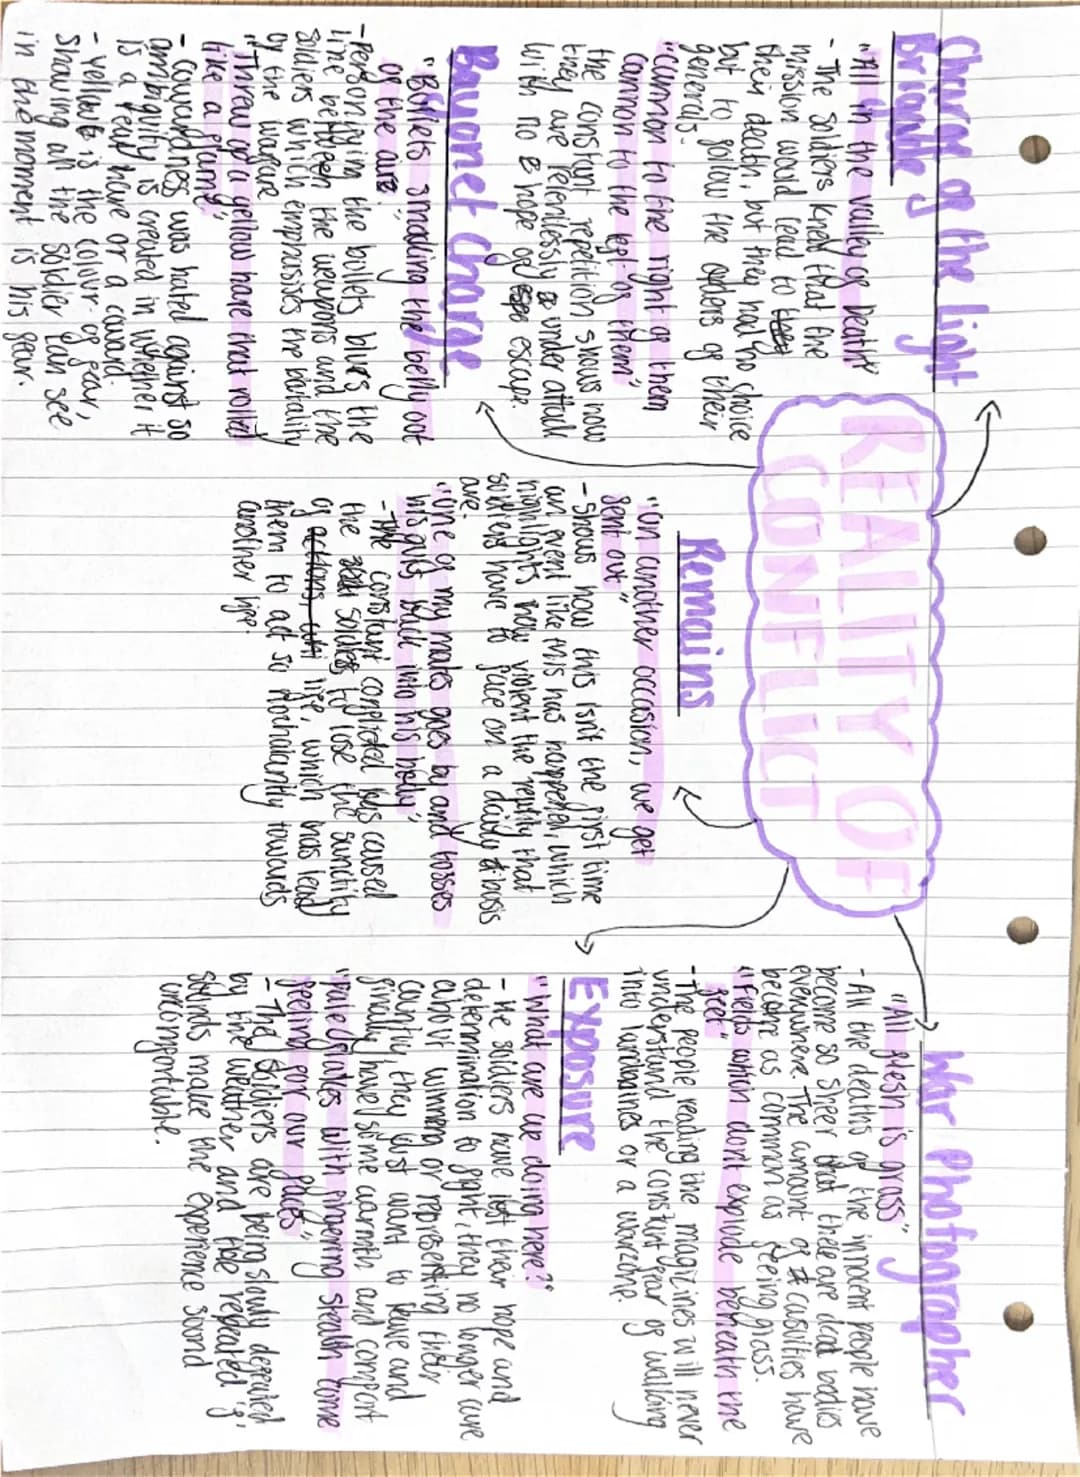 REALITY OF
CONFLICT
Charge of the Light
Brigade
"All in the valley of Death"
- The soldiers knew that the
mission would lead to
their death, but they had no choice
but to follow the orders of their
generals.
"Cannon to the right of them
Cannon to the left of them"
the constant repetition shows how
they are relentlessly under attack
with no hope of escape.
Bayonet Charge
"Bullets smacking the belly out
of the air"
- Personifying the bullets blurs the
line between the weapons and the
soldiers which emphasises the brutality
of the warfare
"Threw up a yellow hare that rolled
like a flame"
- Cowardness was hated against so
ambiguity is created in whether it
is a real hare or a coward.
- Yellow is the colour of fear,
showing all the soldier can see
in the moment is his fear.
Remains
"On another occasion, we get
sent out"
- Shows how this isn't the first time
an event like this has happened, which
highlights how violent the reality that
soldiers have to face on a daily basis
are.
"One of my mates goes by and tosses
his guts back into his body"
- The constant conflict has caused
the soldiers to lose the sanctity
of life, which has lead
them to act so nonchalantly towards
another life.
War Photographer
"All flesh is grass"
- All the deaths of the innocent people have
become so sheer that there are dead bodies
everywhere. The amount of casulties have
become as common as seeing grass.
"Fields which don't explode beneath the
feet"
- The people reading the magizines will never
understand the constant fear of walking
into landmines or a warzone.
Exposure
"What are we doing here?"
- The soldiers have lost their hope and
determination to fight, they no longer care
about winning or representing their
country they just want to leave and
finally have some warmth and comfort
"Pale flakes with fingering stealth come
feeling for our faces"
- The soldiers are being slowly defeated
by the weather and the repeated 'f'
sounds make the experience sound
uncomfortable.